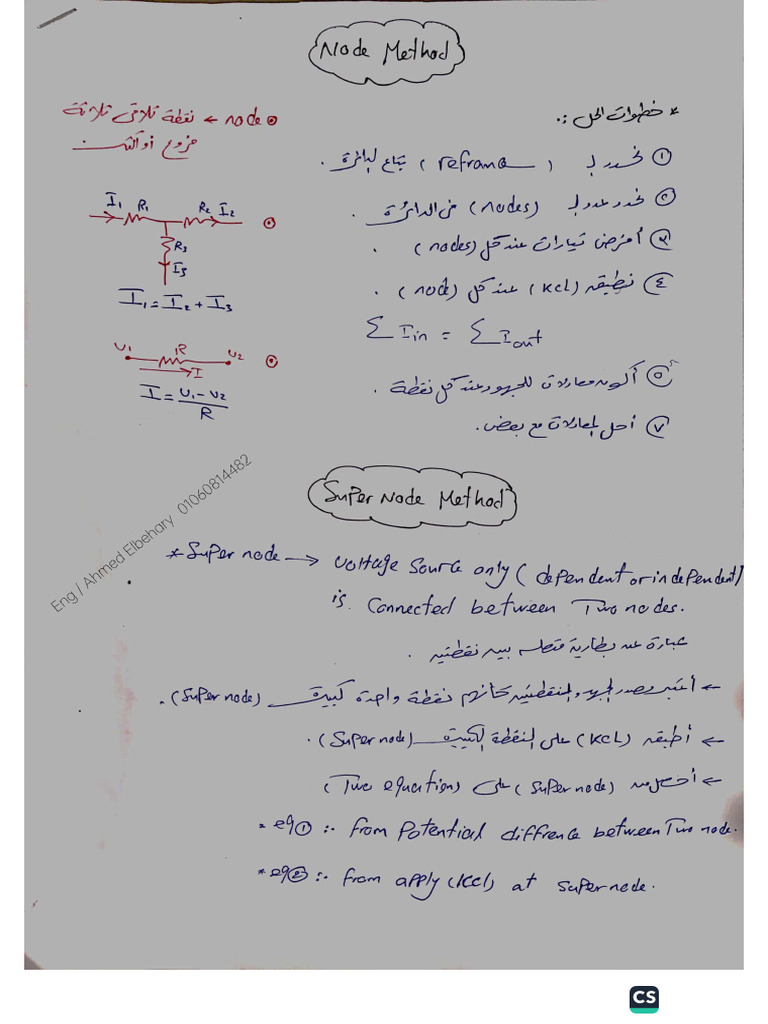 Node Method
* خطوات الحل :.
① نحدد ال (refrance) بتاع الدائرة .
② نحدد عدد ال (nodes) في الدائرة .
③ أفرض تيارات عند كل (nodes) .
④ نطبق (KCL) عند كل (node) .
Σ Iin = Σ Iout
⑤ أكون معادلات للجهود عند كل نقطة .
⑦ أحل المعادلات مع بعض .
node ← نقطة تلاقى ثلاثة
فروع أو أكثر
I1 R1 R2 I2
R3
I3
I1 = I2 + I3
V1 R V2
I
I = V1 - V2
R
Eng / Ahmed Elbehary 01060814482
Super Node Method
* Super node → Voltage Source only (dependent or independent)
is Connected between Two nodes.
عبارة عن بطارية متصلة بين نقطتين .
← أعتبر مصدر الجهد و النقطتين كأنهم نقطة واحدة كبيرة (Super node) .
← أطبق (KCL) على النقطة الكبيرة (Super node) .
← أحصل من (Super node) على (Two equation)
* eq① :- from Potential diffrence between Two node.
* eq② :- from apply (KCL) at super node.
CS